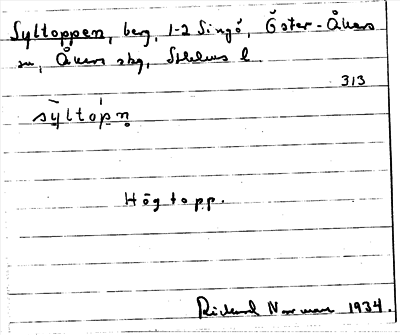 Syltoppen, berg, 1-2 Singö, Öster-Åkers
sn, Åkers skg, Sthlms l.
313
sy̆ltop̣ṇ
Hög topp.
Rickard Norman 1934.